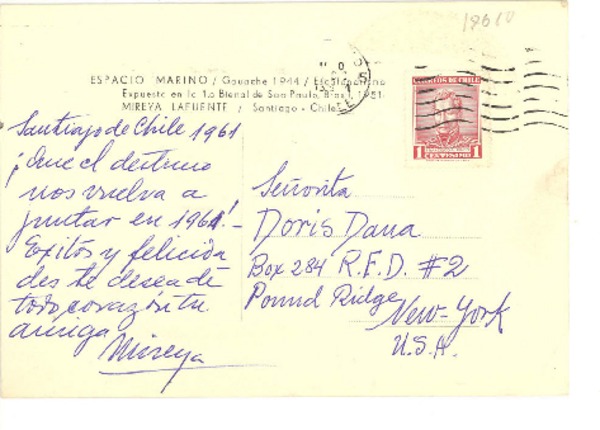 18610
ESPACIO MARINO / Gouache 1944 /
Expuesto en la 1.a Bienal de Sao Paulo, Brasil, 1951
MIREYA LAFUENTE / Santiago - Chile
CORREOS DE CHILE
1 1
CENTESIMO
Santiago de Chile 1961
¡Que el destino
nos vuelva a
juntar en 1961! -
Exitos y felicida
des te desea de
todo corazón tu
amiga
Mireya
Señorita
Doris Dana
Box 284 R.F.D. #2
Pound Ridge
New-York
U.S.A.